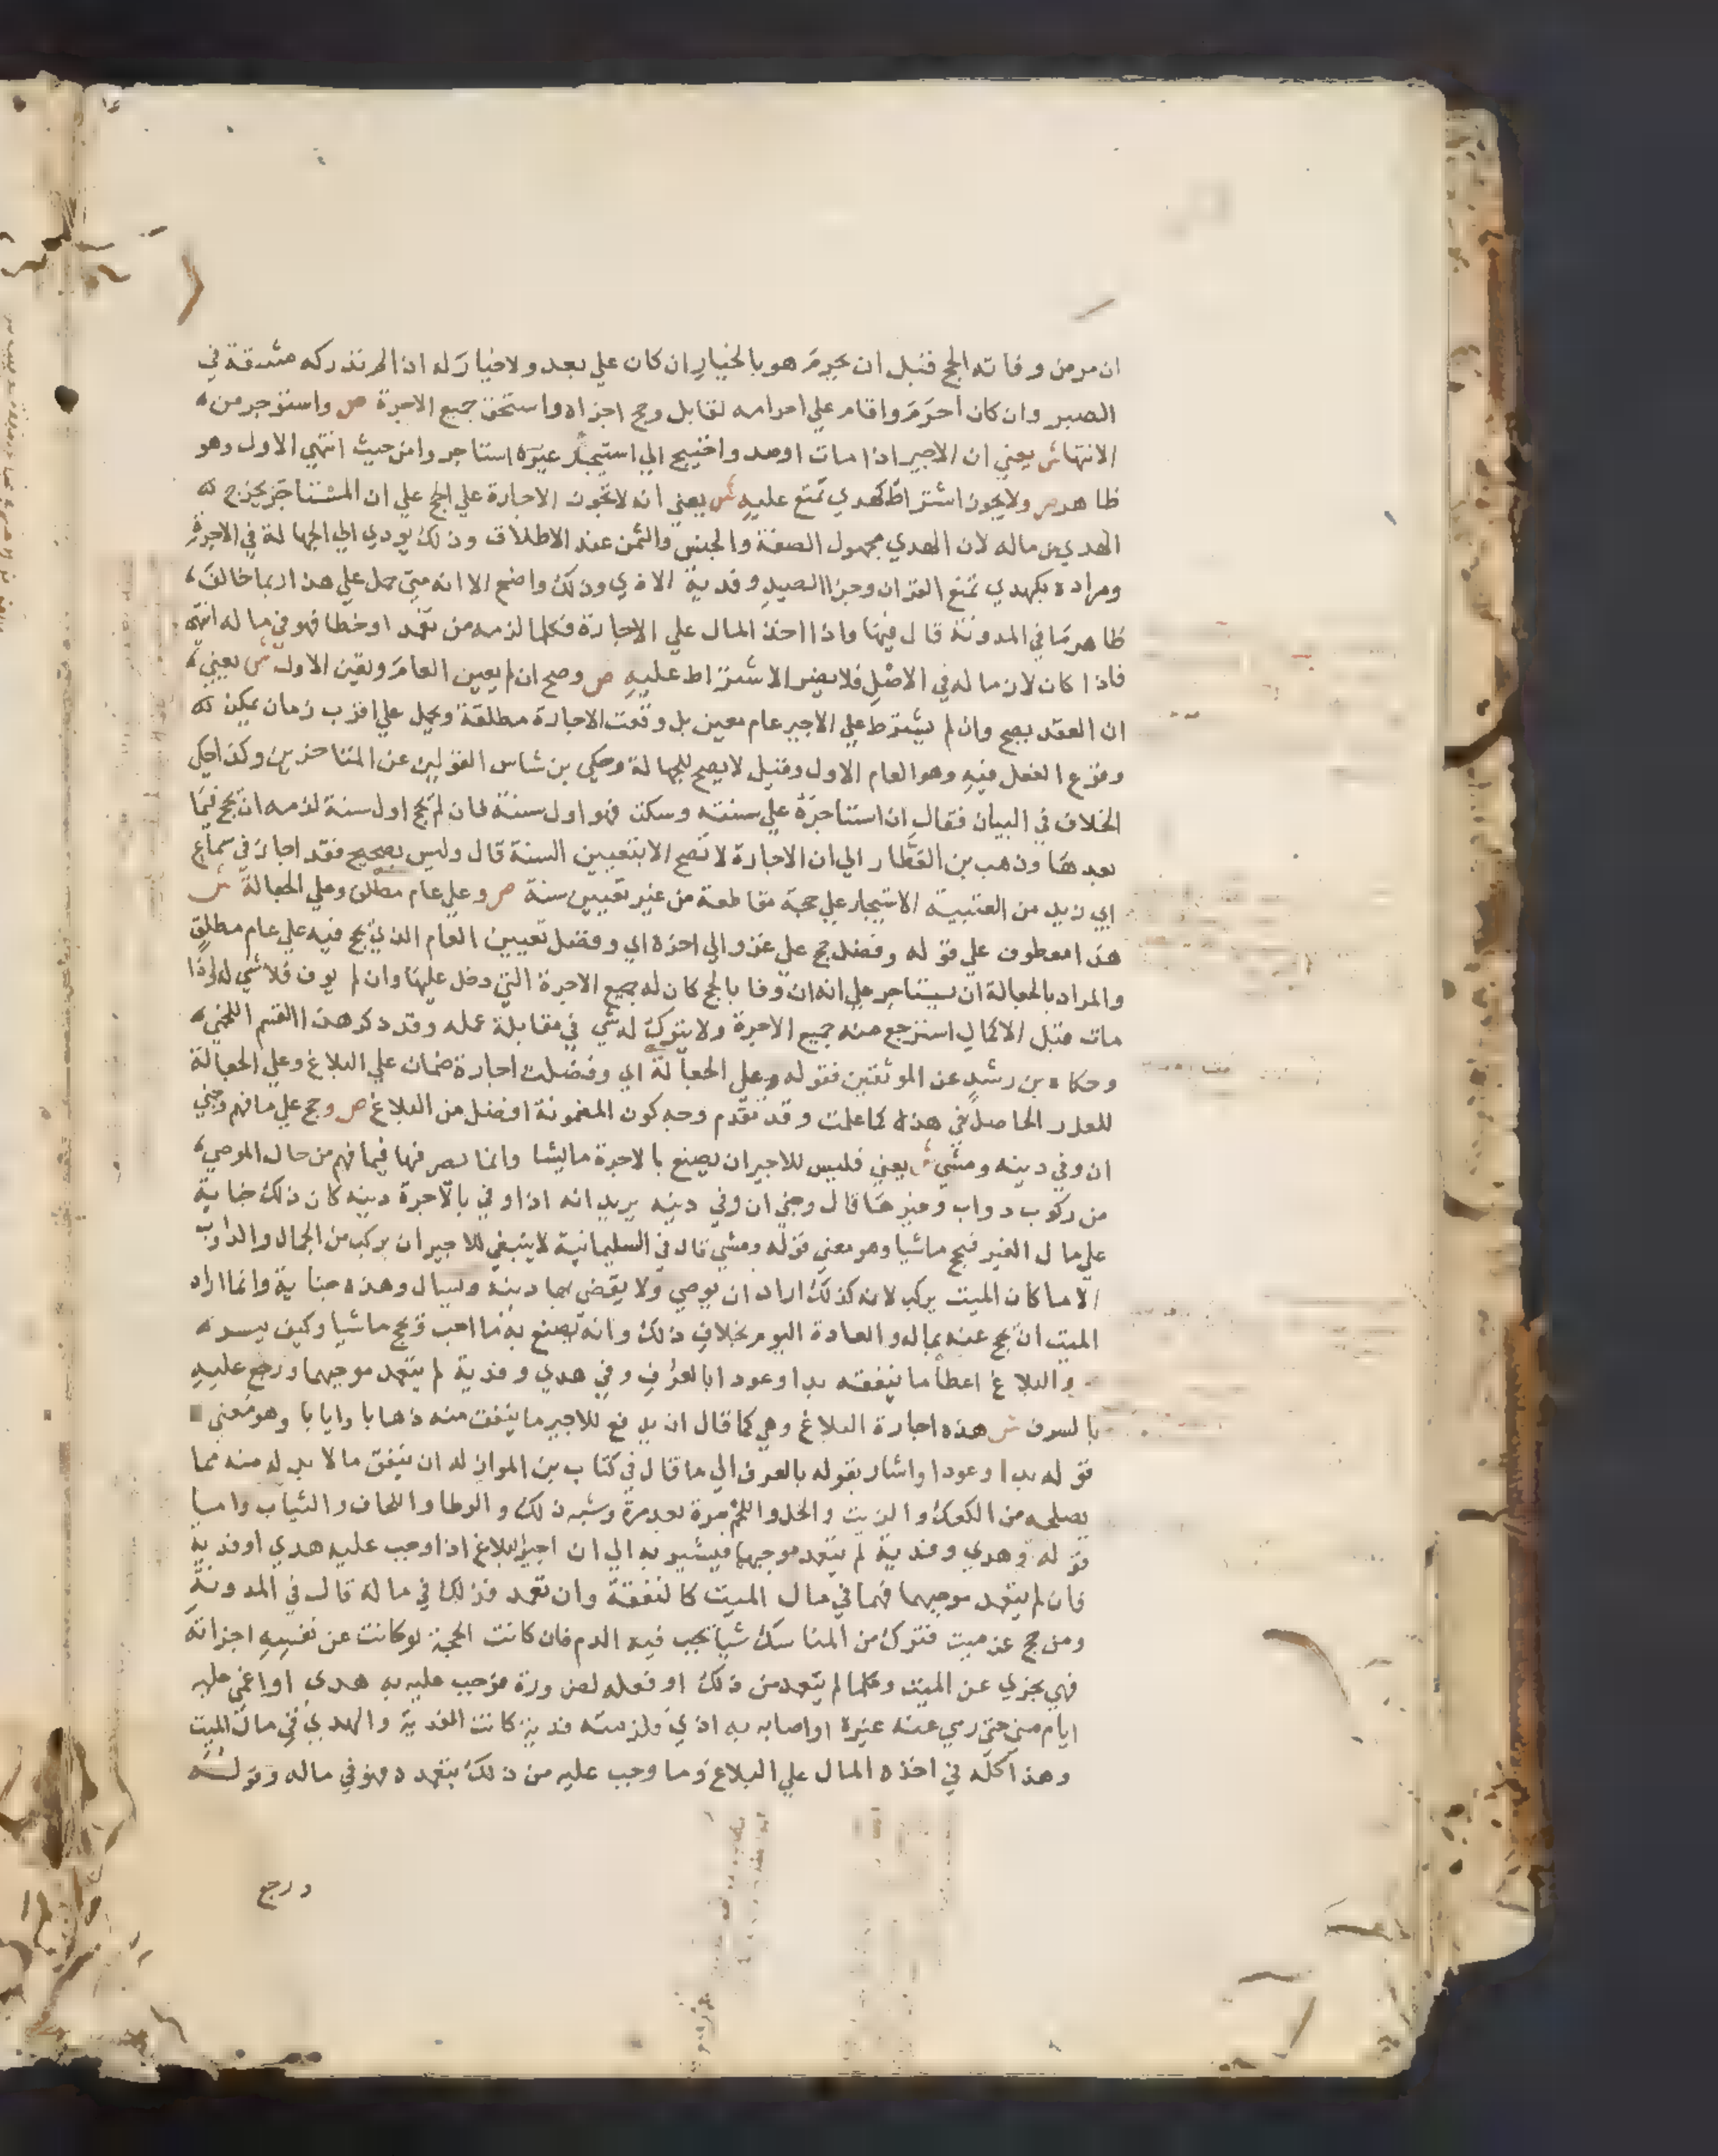 ان مر من وفاته الحج فنبل ان يحرم هو بالخيار ان كان علي بعد ولا خيار له اذ الم تدركه مشقة في
الصبر وان كان احرم واقام علي احرامه لقابل وحج اجزاه واستحق جميع الاجرة ص واستوجر من
الانتها ش يعني ان الاجير اذا مات اوصد واختيج الي استيجار غيره استاجروا من حيث انتهي الاول وهو
ظاهر ص ولا يجوز اشتراط كهدي تمتع عليه ش يعني انه لا تجوز الاجارة علي الحج علي ان المستاجر يخرج
الهدي من ماله لان الهدي مجهول الصفة والجنس والثمن عند الاطلاق وذلك يودي الي الجهالة في الاجرة
ومراده بكهدي تمتع القران وجزا الصيد وفدية الاذي وذلك واضح الا انه متي حمل علي هذا ربما خالف
ظاهر ما في المدونة قال فيها واذا اخذ المال علي الاجارة فكلما لزمه من تعمد او خطا فهو في ماله انتهي
فاذا كان لازما له في الاصل فلا يضر الاشتراط عليه ص وصح ان لم يعين العام وتعين الاول ش يعني
ان العقد يصح وان لم يشترط علي الاجير عام معين بل وقعت الاجارة مطلقة ويحمل علي اقرب زمان يمكن
وقوع الفعل فيه وهو العام الاول وقيل لا يصح للجهالة وحكي بن شاس القولين عن المتاخرين وكذا حكي
الخلاف في البيان فقال ان استاجره علي سنته وسكت فهو اول سنة فان لم يحج اول سنة لزمه ان يحج فيما
بعدها وذهب بن العطار الي ان الاجارة لا تصح الا بتعيين السنة قال وليس بصحيح فقد اجاز في سماع
ابي زيد من العتبية الاستيجار علي حجة مقاطعة من غير تعيين سنة ص وعلي عام مطلق وعلي الجعالة ش
هذا معطوف علي قوله وفضل حج علي غزو الي اخره اي وفضل تعيين العام الذي يحج فيه علي عام مطلق
والمراد بالجعالة ان يستاجر علي انه ان وفا بالحج كان له جميع الاجرة التي دخل عليها وان لم يوف فلا شي له واذا
مات قبل الاكمال استرجع منه جميع الاجرة ولا يترك له شي في مقابلة عمله وقد ذكر هذا القسم اللخمي
وحكاه بن رشد عن الموثقين فقوله وعلي الجعالة اي وفضلت اجارة ضمان علي البلاغ وعلي الجعالة
للغرر الحاصل في هذا كما علمت وقد تقدم وجه كون المضمونة افضل من البلاغ ص وحج علي ما فهم وجني
ان وفي دينه ومشي ش يعني فليس للاجير ان يصنع بالاجرة ما يشا وانما يصرفها فيما فهم من حال الموصي
من ركوب دواب وغيرها قال وجني ان وفي دينه يريد انه اذا وفي بالاجرة دينه كان ذلك جناية
علي مال الغير فيحج ماشيا وهو معني قوله ومشي قال في السليمانية لا ينبغي للاجير ان يركب من الجمال والدواب
الا ما كان الميت يركب لانه كذلك اراد ان يوصي ولا يقضي بها دينه ويسال وهذه جناية وانما اراد
الميت ان يحج عنه بماله والعادة اليوم بخلاف ذلك وانه يصنع به ما احب ويحج ماشيا وكيف يسر
والبلاغ اعطا ما ينفقه بدا وعودا بالعرف وفي هدي وفدية لم يتعمد موجبهما ورجع عليه
بالسرف ش هذه اجارة البلاغ وهي كما قال ان يدفع للاجير ما ينفق منه ذهابا وايابا وهو معني
قوله بدا وعودا واشار بقوله بالعرف الي ما قال في كتاب بن المواز له ان ينفق ما لا بد له منه مما
يصلحه من الكعك والزيت والخل واللحم مرة بعد مرة وشبه ذلك والوطا واللحاف والثياب واما
قوله وهدي وفدية لم يتعمد موجبهما فيشير به الي ان اجير البلاغ اذا وجب عليه هدي او فدية
فان لم يتعمد موجبهما فهما في مال الميت كالنفقة وان تعمد فذلك في ماله قال في المدونة
ومن حج عن ميت فترك من المناسك شيا يجب فيه الدم فان كانت الحجة لو كانت عن نفسه اجزاته
فهي تجزي عن الميت وكلما لم يتعمد من ذلك او فعله لضرورة فوجب عليه به هدي او اغمي عليه
ايام مني حتي رمي عنه غيره او اصابه به اذي ولزمته فدية كانت الفدية والهدي في مال الميت
وهذا كله في اخذه المال علي البلاغ وما وجب عليه من ذلك بتعمده فهو في ماله وقوله
ورجع